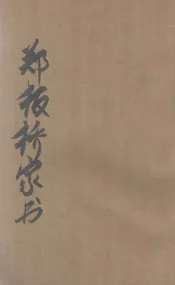 郑板桥家书